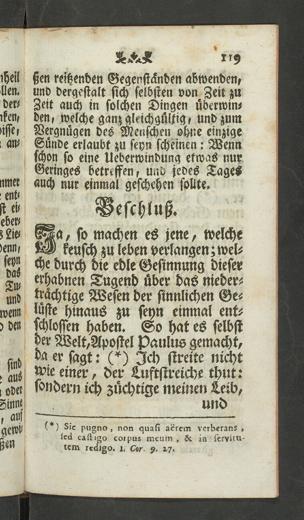 119
ßen reitzenden Gegenständen abwenden,
und dergestalt sich selbsten von Zeit zu
Zeit auch in solchen Dingen überwin-
den, welche ganz gleichgültig, und zum
Vergnügen des Menschen ohne einzige
Sünde erlaubt zu seyn scheinen: Wenn
schon so eine Ueberwindung etwas nur
Geringes betreffen, und jedes Tages
auch nur einmal geschehen sollte.
Beschluß.
Ja, so machen es jene, welche
keusch zu leben verlangen; wel-
che durch die edle Gesinnung dieser
erhabnen Tugend über das nieder-
trächtige Wesen der sinnlichen Ge-
lüste hinaus zu seyn einmal ent-
schlossen haben. So hat es selbst
der Welt-Apostel Paulus gemacht,
da er sagt: (*) Ich streite nicht
wie einer, der Luftstreiche thut:
sondern ich züchtige meinen Leib,
und
(*) Sic pugno, non quasi aërem verberans,
sed castigo corpus meum, & in servitu-
tem redigo. I. Cor. 9. 27.